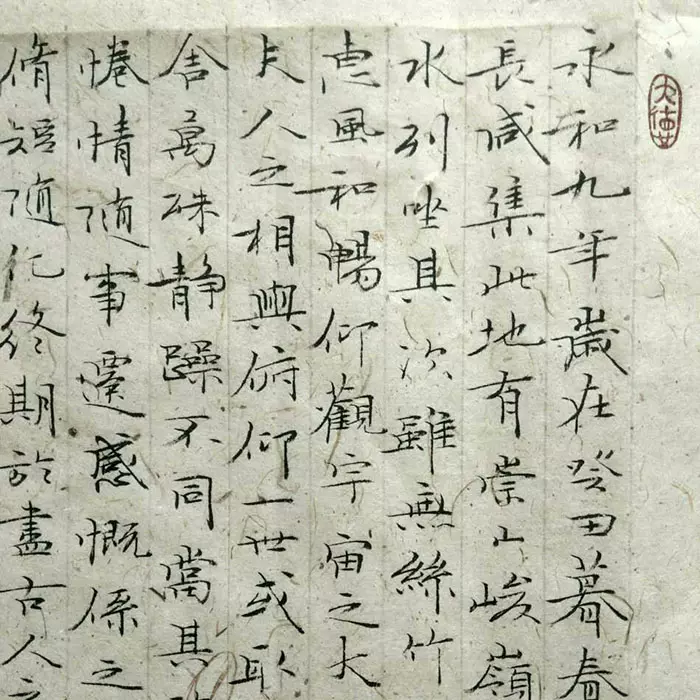 永和九年歲在癸丑暮春
長咸集此地有崇山峻嶺
水列坐其次雖無絲竹
恵風和暢仰觀宇宙之大
夫人之相與俯仰一世或取
舎萬殊静躁不同當其
惓情隨事遷感慨係之
脩短隨化終期於盡古人之